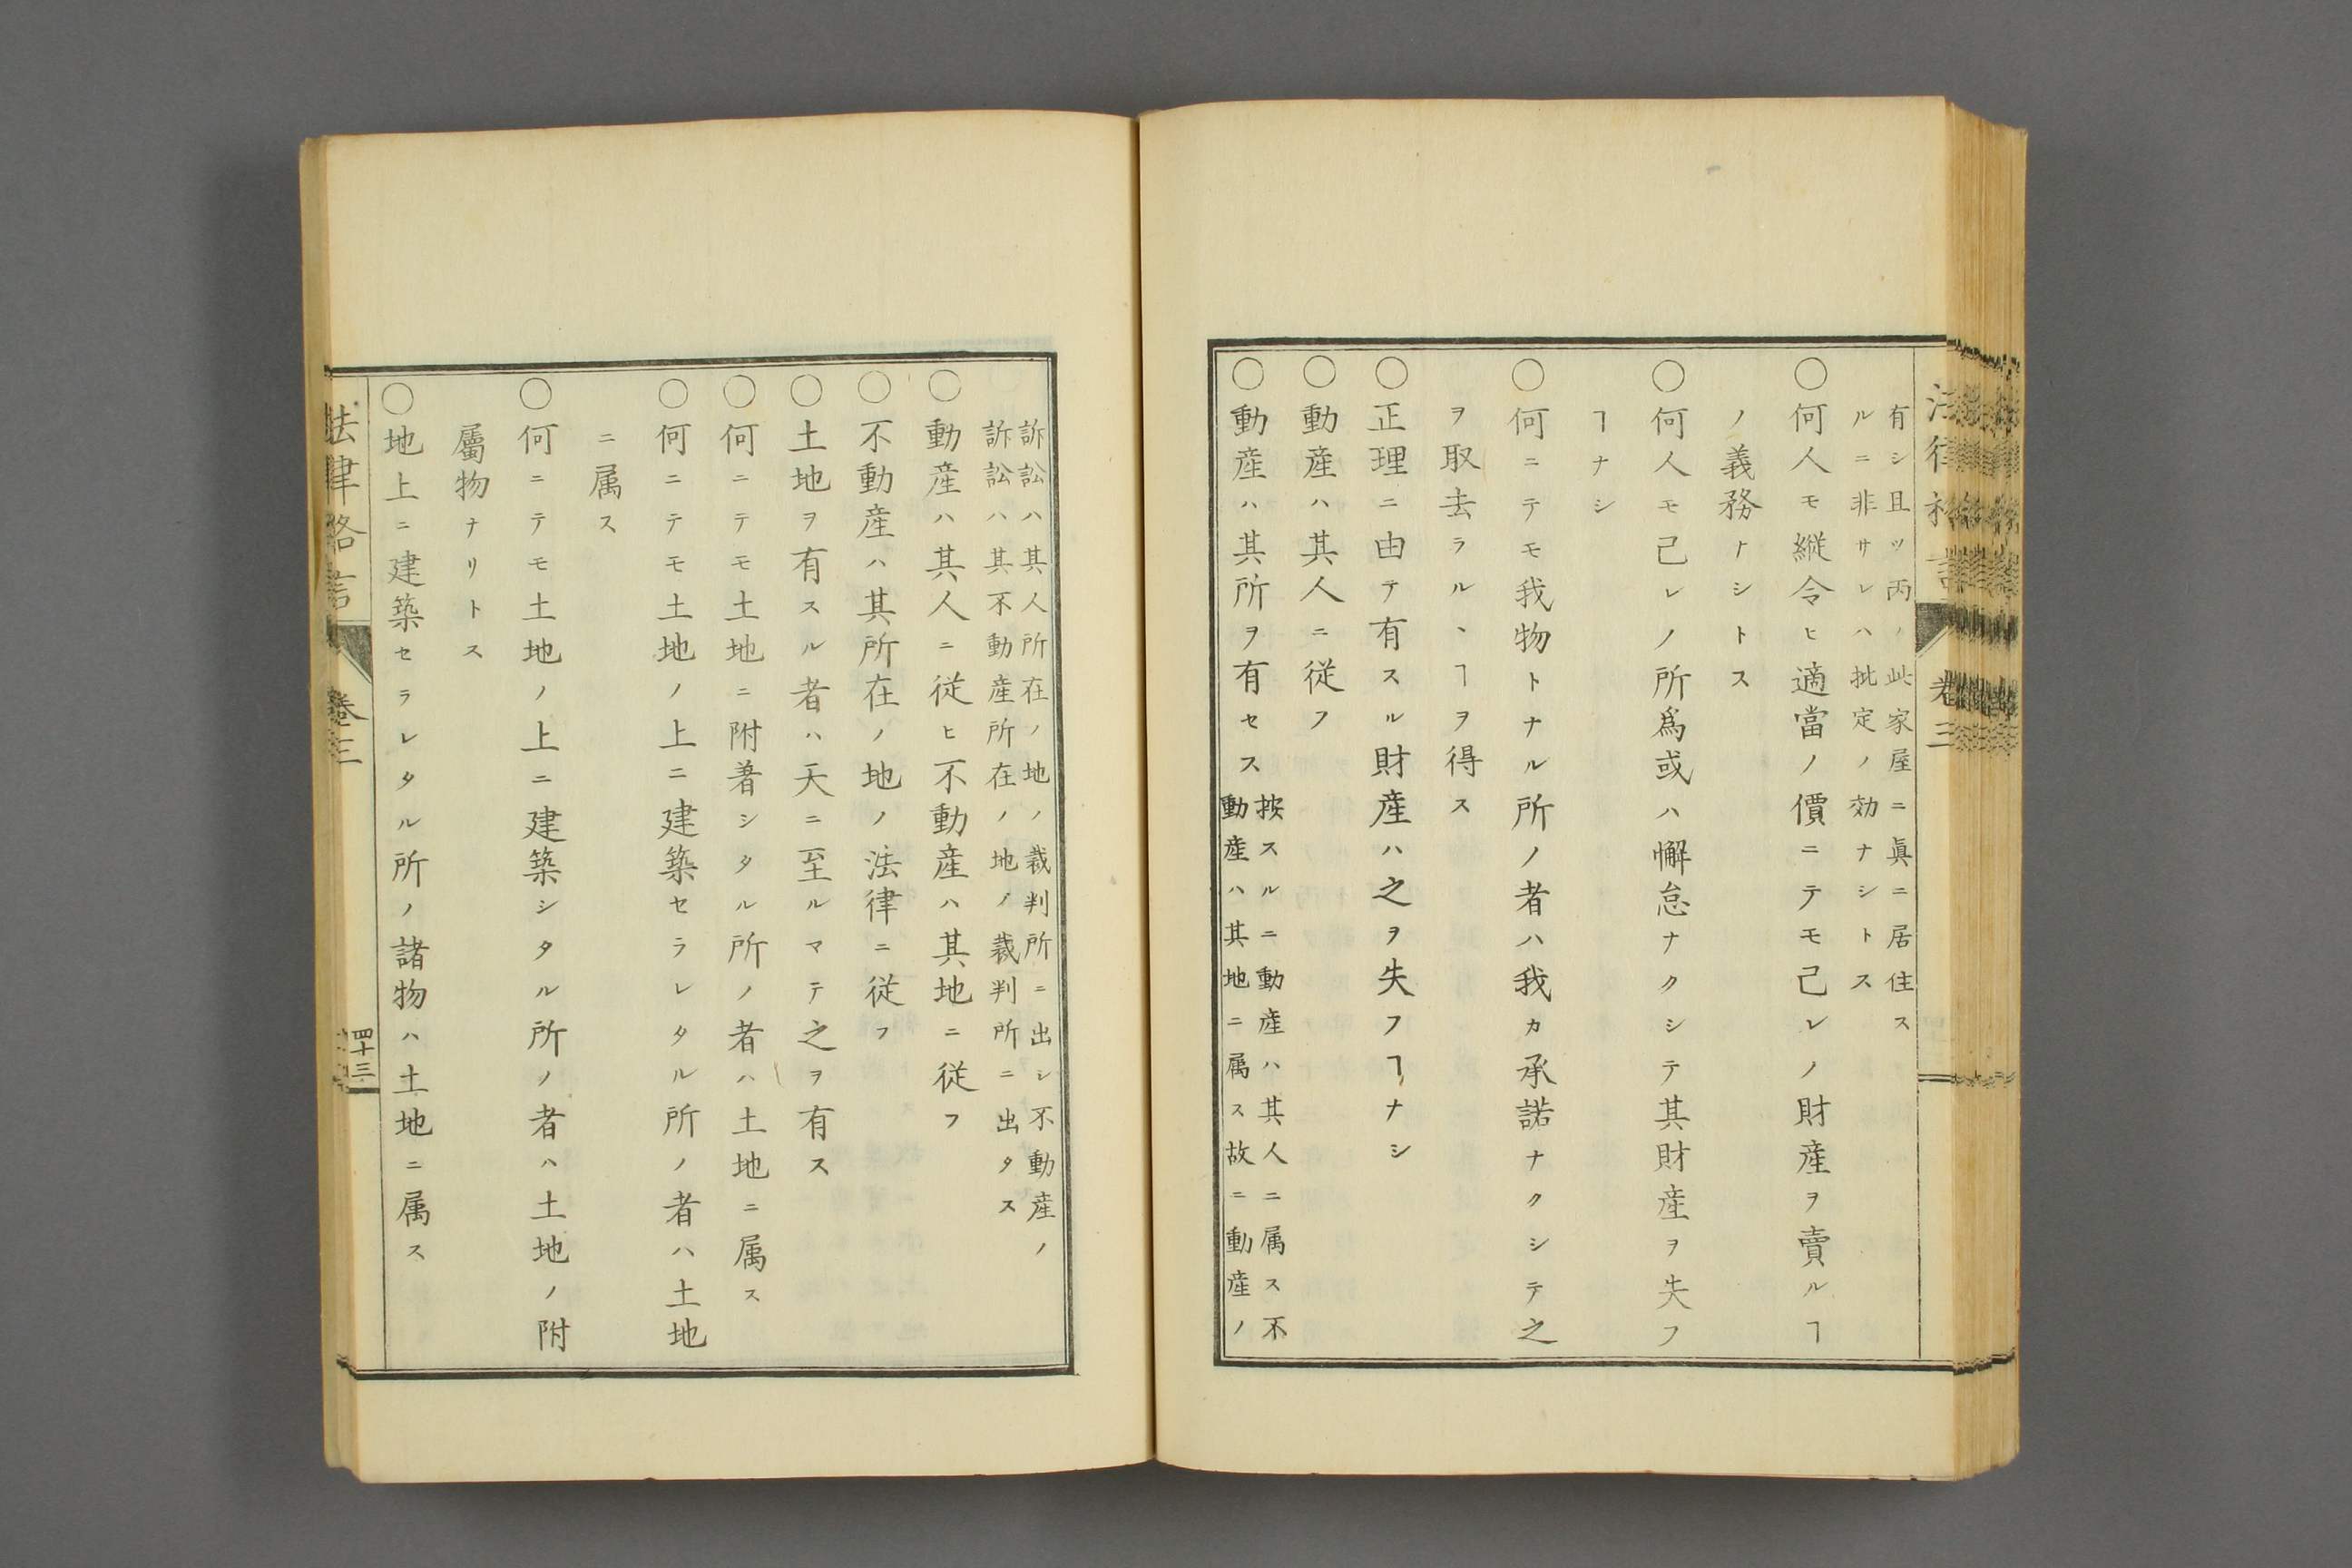 有シ且ツ丙ノ此家屋ニ眞ニ居住ス
ルニ非サレハ批定ノ効ナシトス
○何人モ縦令ヒ適當ノ價ニテモ己レノ財産ヲ賣ルヿ
ノ義務ナシトス
○何人モ己レノ所爲或ハ懈怠ナクシテ其財産ヲ失フ
ヿナシ
○何ニテモ我物トナル所ノ者ハ我カ承諾ナクシテ之
ヲ取去ラルヽヿヲ得ス
○正理ニ由テ有スル財産ハ之ヲ失フヿナシ
○動産ハ其人ニ従フ
○動産ハ其所ヲ有セス
按スルニ動産ハ其人ニ属ス不
動産ハ其地ニ属ス故ニ動産ノ
訴訟ハ其人所在ノ地ノ裁判所ニ出シ不動産ノ
訴訟ハ其不動産所在ノ地ノ裁判所ニ出タス
○動産ハ其人ニ従ヒ不動産ハ其地ニ従フ
○不動産ハ其所在ノ地ノ法律ニ従フ
○土地ヲ有スル者ハ天ニ至ルマテ之ヲ有ス
○何ニテモ土地ニ附着シタル所ノ者ハ土地ニ属ス
○何ニテモ土地ノ上ニ建築セラレタル所ノ者ハ土地
ニ属ス
○何ニテモ土地ノ上ニ建築シタル所ノ者ハ土地ノ附
屬物ナリトス
○地上ニ建築セラレタル所ノ諸物ハ土地ニ属ス
法律格言
卷三
四十三